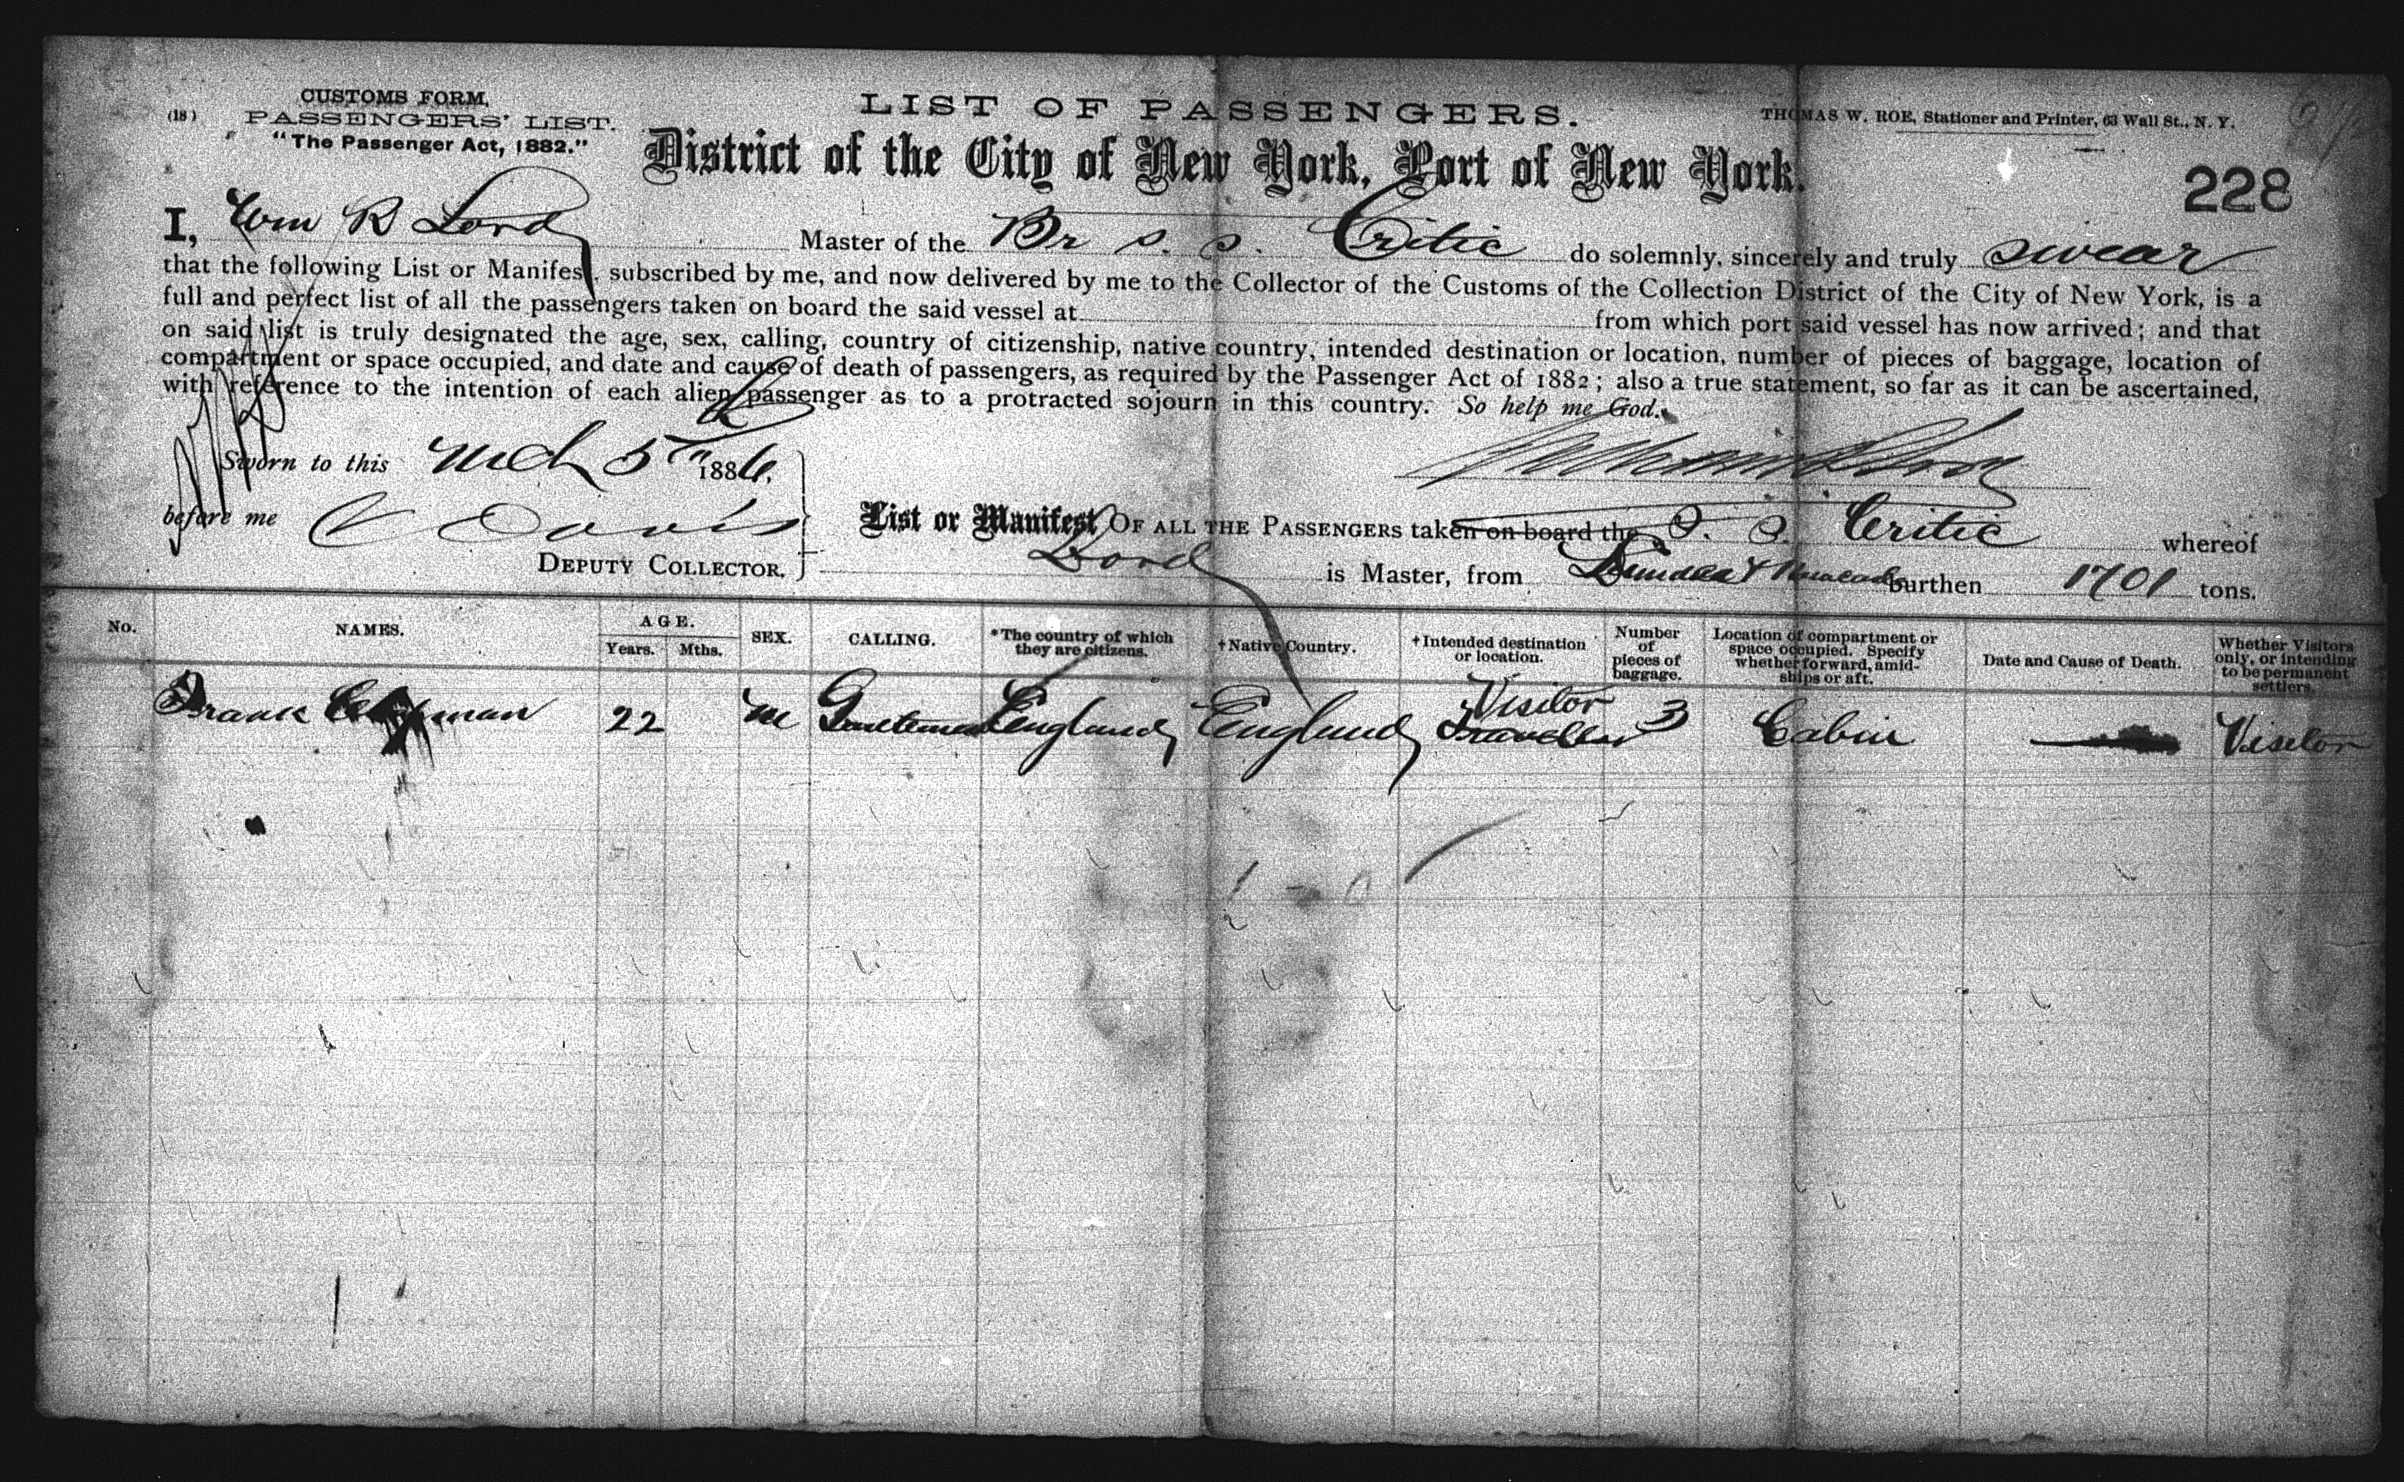 CUSTOMS FORM.
(18) PASSENGERS' LIST.
"The Passenger Act, 1882."
LIST OF PASSENGERS.
THOMAS W. ROE, Stationer and Printer, 63 Wall St., N. Y.
District of the City of New York, Port of New York.
228
I, Wm R Lord Master of the Br s. s. Critic do solemnly, sincerely and truly swear
that the following List or Manifest, subscribed by me, and now delivered by me to the Collector of the Customs of the Collection District of the City of New York, is a
full and perfect list of all the passengers taken on board the said vessel at from which port said vessel has now arrived; and that
on said list is truly designated the age, sex, calling, country of citizenship, native country, intended destination or location, number of pieces of baggage, location of
compartment or space occupied, and date and cause of death of passengers, as required by the Passenger Act of 1882; also a true statement, so far as it can be ascertained,
with reference to the intention of each alien passenger as to a protracted sojourn in this country. So help me God.
Sworn to this Mch 5th 1886.
before me C Davis
DEPUTY COLLECTOR.
List or Manifest OF ALL THE PASSENGERS taken on board the S. S. Critic whereof
Lord is Master, from Dundee & burthen 1701 tons.
No. NAMES. AGE. Years. Mths. SEX. CALLING. *The country of which they are citizens. †Native Country. †Intended destination or location. Number of pieces of baggage. Location of compartment or space occupied. Specify whether forward, amidships or aft. Date and Cause of Death. Whether Visitors only, or intending to be permanent settlers.
Frank 22 M Gentleman England England Visitor Traveller 3 Cabin Visitor